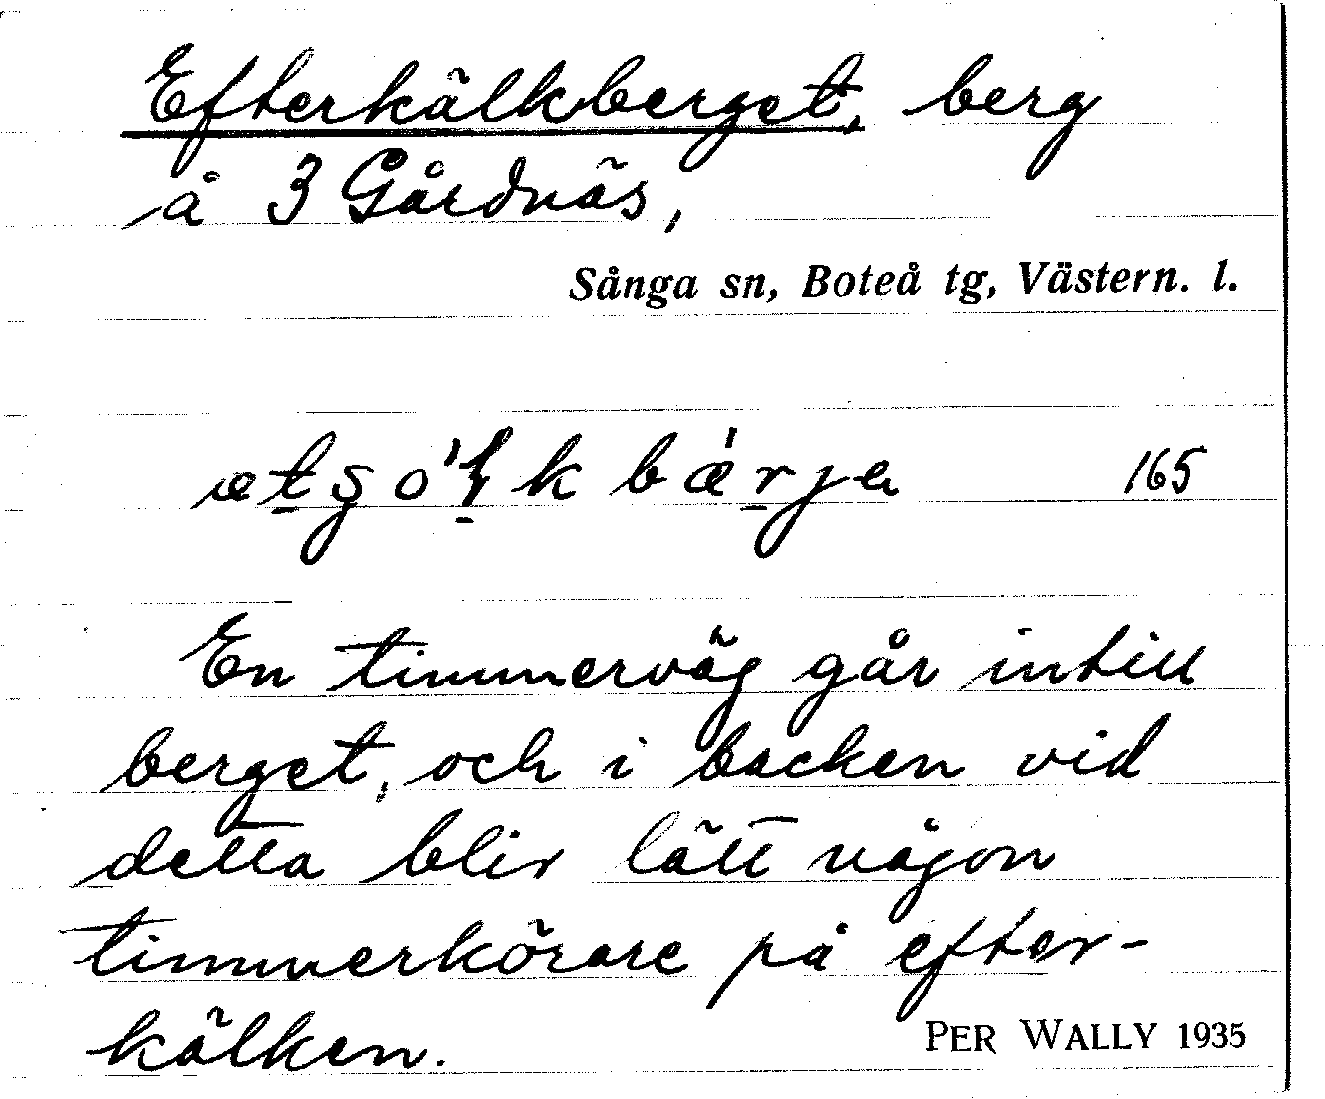 Efterkälkberget, berg
å 3 Gårdnäs,
Sånga sn, Boteå tg, Västern. l.
165
En timmerväg går intill
berget, och i backen vid
detta blir lätt någon
timmerkörare på efter-
kälken.
PER WALLY 1935